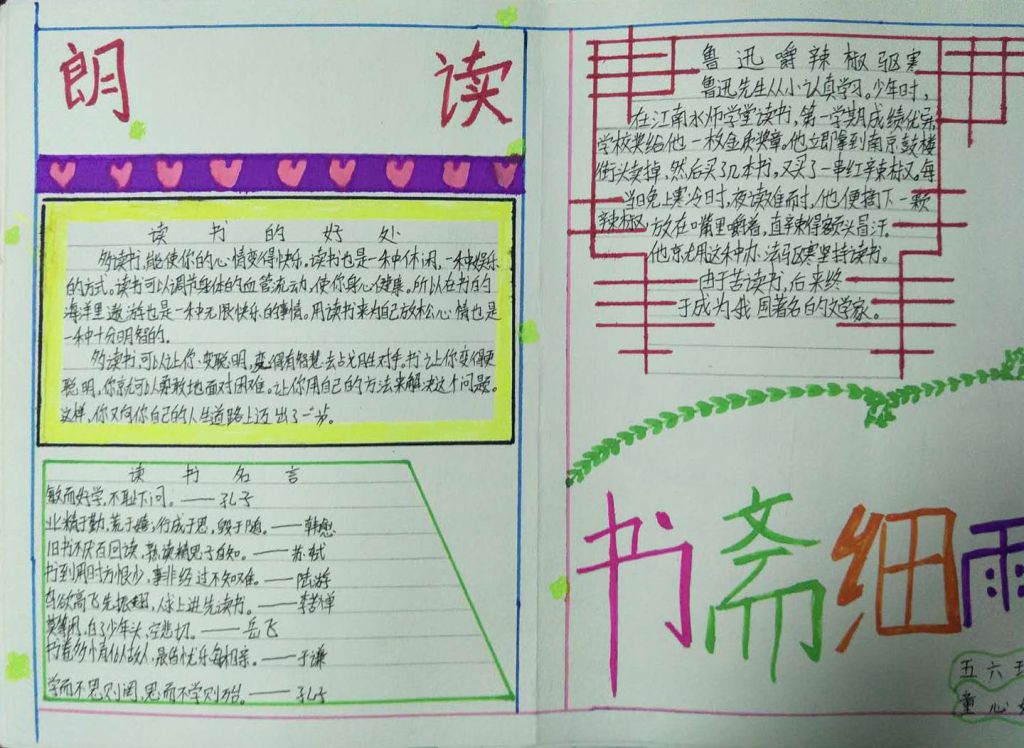 朗 读
读书的好处
多读书,能使你的心情变得快乐。读书也是一种休闲,一种娱乐
的方式。读书可以调节身体的血管流动,使你身心健康。所以在书的
海洋里遨游也是一种无限快乐的事情。用读书来为自己放松心情也是
一种十分明智的。
多读书,可以让你变聪明,变得有智慧去战胜对手。书让你变得更
聪明,你就可以勇敢地面对困难。让你用自己的方法来解决这个问题。
这样,你又向你自己的人生道路上迈出了一步。
读书名言
敏而好学,不耻下问。——孔子
业精于勤,荒于嬉;行成于思,毁于随。——韩愈
旧书不厌百回读,熟读精思子自知。——苏轼
书到用时方恨少,事非经过不知难。——陆游
鸟欲高飞先振翅,人求上进先读书。——李苦禅
莫等闲,白了少年头,空悲切。——岳飞
书卷多情似故人,晨昏忧乐每相亲。——于谦
学而不思则罔,思而不学则殆。——孔子
鲁迅嚼辣椒驱寒
鲁迅先生从小认真学习。少年时,
在江南水师学堂读书,第一学期成绩优异,
学校奖给他一枚金质奖章。他立即拿到南京鼓楼
街头卖掉,然后买了几本书,又买了一串红辣椒。每
当晚上寒冷时,夜读难耐,他便摘下一颗
辣椒,放在嘴里嚼着,直辣得额头冒汗。
他就用这种办法驱寒坚持读书。
由于苦读书,后来终
于成为我国著名的文学家。
书斋细雨
五六班
童心